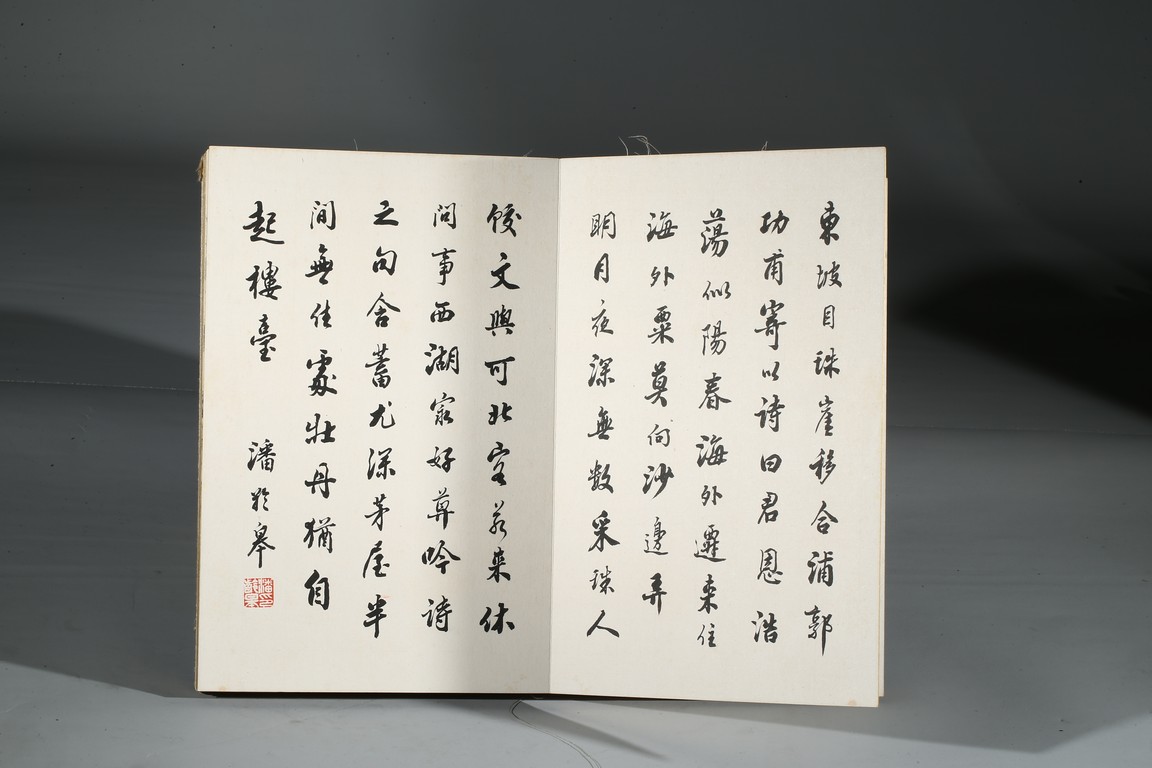 東坡自珠崖移合浦郭
功甫寄以詩曰君恩浩
蕩似陽春海外遷来住
海外粟莫向沙邊弄
明月夜深無數采珠人
餃文與可北客若来休
問事西湖家好莫吟詩
之句舍蓄尤深茅屋半
間無佳處牡丹猶自
起樓臺
潘齡皋